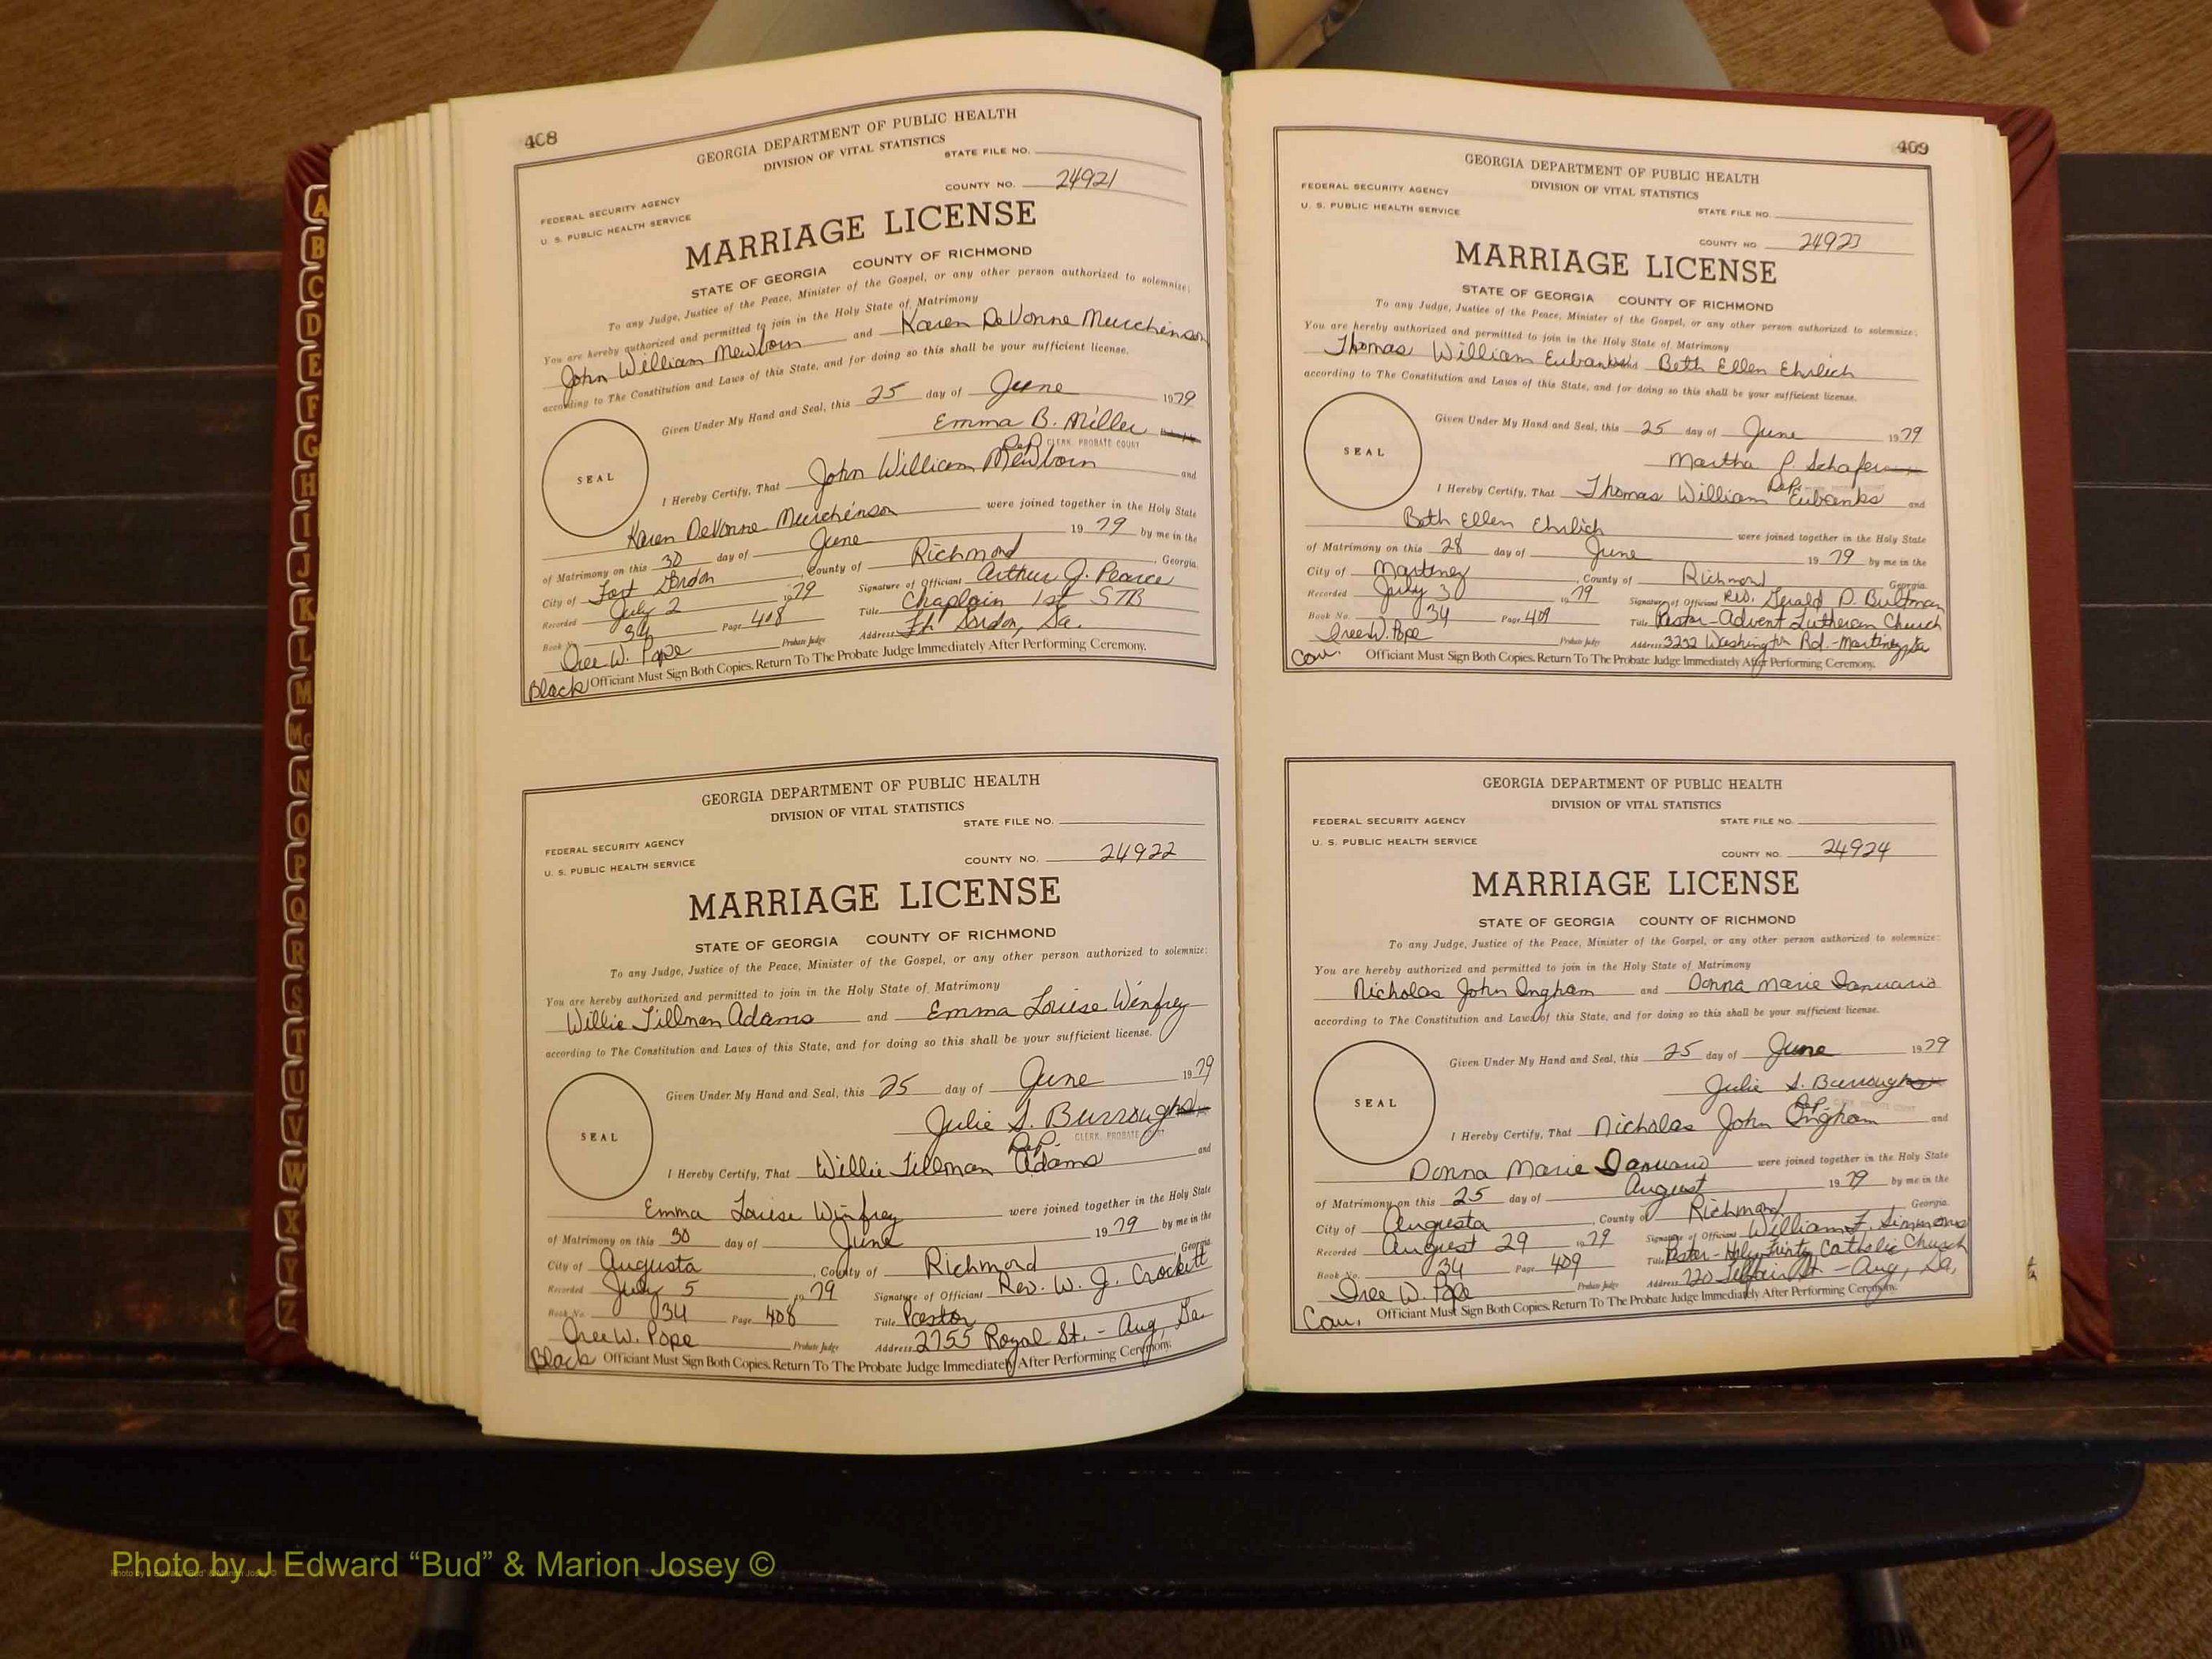 A
B
C
D
E
F
G
H
I
J
K
L
M
Mc
N
O
P
Q
R
S
T
U
V
W
X
Y
Z
408
GEORGIA DEPARTMENT OF PUBLIC HEALTH
DIVISION OF VITAL STATISTICS
STATE FILE NO.
COUNTY NO. 24921
FEDERAL SECURITY AGENCY
U. S. PUBLIC HEALTH SERVICE
MARRIAGE LICENSE
STATE OF GEORGIA COUNTY OF RICHMOND
To any Judge, Justice of the Peace, Minister of the Gospel, or any other person authorized to solemnize:
You are hereby authorized and permitted to join in the Holy State of Matrimony
John William Mewborn and Karen DeVonne Murchinson
according to The Constitution and Laws of this State, and for doing so this shall be your sufficient license.
Given Under My Hand and Seal, this 25 day of June 1979
Emma B. Miller
Dep. CLERK, PROBATE COURT
SEAL
I Hereby Certify, That John William Mewborn and
Karen DeVonne Murchinson were joined together in the Holy State
of Matrimony on this 30 day of June 19 79 by me in the
City of Fort Gordon, County of Richmond, Georgia.
Recorded July 2 1979 Signature of Officiant Arthur J. Pearce
Book No. 34 Page 408 Title Chaplain 1st STB
Iree W. Pope Probate Judge Address Ft. Gordon, Ga.
Black Officiant Must Sign Both Copies. Return To The Probate Judge Immediately After Performing Ceremony.
GEORGIA DEPARTMENT OF PUBLIC HEALTH
DIVISION OF VITAL STATISTICS
STATE FILE NO.
FEDERAL SECURITY AGENCY
U. S. PUBLIC HEALTH SERVICE
COUNTY NO. 24922
MARRIAGE LICENSE
STATE OF GEORGIA COUNTY OF RICHMOND
To any Judge, Justice of the Peace, Minister of the Gospel, or any other person authorized to solemnize:
You are hereby authorized and permitted to join in the Holy State of Matrimony
Willie Tillman Adams and Emma Louise Winfrey
according to The Constitution and Laws of this State, and for doing so this shall be your sufficient license.
Given Under My Hand and Seal, this 25 day of June 1979
Julie S. Burroughs
Dep. CLERK, PROBATE COURT
SEAL
I Hereby Certify, That Willie Tillman Adams and
Emma Louise Winfrey were joined together in the Holy State
of Matrimony on this 30 day of June 19 79 by me in the
City of Augusta, County of Richmond, Georgia.
Recorded July 5 1979 Signature of Officiant Rev. W. J. Crockett
Book No. 34 Page 408 Title Pastor
Iree W. Pope Probate Judge Address 2755 Royal St. - Aug, Ga
Black Officiant Must Sign Both Copies. Return To The Probate Judge Immediately After Performing Ceremony.
409
GEORGIA DEPARTMENT OF PUBLIC HEALTH
FEDERAL SECURITY AGENCY DIVISION OF VITAL STATISTICS
U. S. PUBLIC HEALTH SERVICE STATE FILE NO.
COUNTY NO. 24923
MARRIAGE LICENSE
STATE OF GEORGIA COUNTY OF RICHMOND
To any Judge, Justice of the Peace, Minister of the Gospel, or any other person authorized to solemnize:
You are hereby authorized and permitted to join in the Holy State of Matrimony
Thomas William Eubanks Beth Ellen Ehrlich
according to The Constitution and Laws of this State, and for doing so this shall be your sufficient license.
Given Under My Hand and Seal, this 25 day of June 1979
Martha P. Schafer
Dep.
SEAL
I Hereby Certify, That Thomas William Eubanks and
Beth Ellen Ehrlich were joined together in the Holy State
of Matrimony on this 28 day of June 19 79 by me in the
City of Martinez, County of Richmond Georgia.
Recorded July 3 1979 Signature of Officiant Rev. Gerald D. Bultman
Book No. 34 Page 409 Title Pastor-Advent Lutheran Church
Iree W. Pope Probate Judge Address 3232 Washington Rd. - Martinez, Ga
Cau. Officiant Must Sign Both Copies. Return To The Probate Judge Immediately After Performing Ceremony.
GEORGIA DEPARTMENT OF PUBLIC HEALTH
DIVISION OF VITAL STATISTICS
FEDERAL SECURITY AGENCY STATE FILE NO.
U. S. PUBLIC HEALTH SERVICE
COUNTY NO. 24924
MARRIAGE LICENSE
STATE OF GEORGIA COUNTY OF RICHMOND
To any Judge, Justice of the Peace, Minister of the Gospel, or any other person authorized to solemnize:
You are hereby authorized and permitted to join in the Holy State of Matrimony
Nicholas John Ingham and Donna Marie Ianuario
according to The Constitution and Laws of this State, and for doing so this shall be your sufficient license.
Given Under My Hand and Seal, this 25 day of June 1979
Julie S. Burroughs
Dep. CLERK, PROBATE COURT
SEAL
I Hereby Certify, That Nicholas John Ingham and
Donna Marie Ianuario were joined together in the Holy State
of Matrimony on this 25 day of August 19 79 by me in the
City of Augusta, County of Richmond, Georgia.
Recorded August 29 1979 Signature of Officiant William F. Simmons
Book No. 34 Page 409 Title Pastor-Holy Trinity Catholic Church
Iree W. Pope Probate Judge Address 720 Telfair St - Aug, Ga,
Cau. Officiant Must Sign Both Copies. Return To The Probate Judge Immediately After Performing Ceremony.
Photo by J Edward “Bud” & Marion Josey ©
Photo by J Edward “Bud” & Marion Josey ©